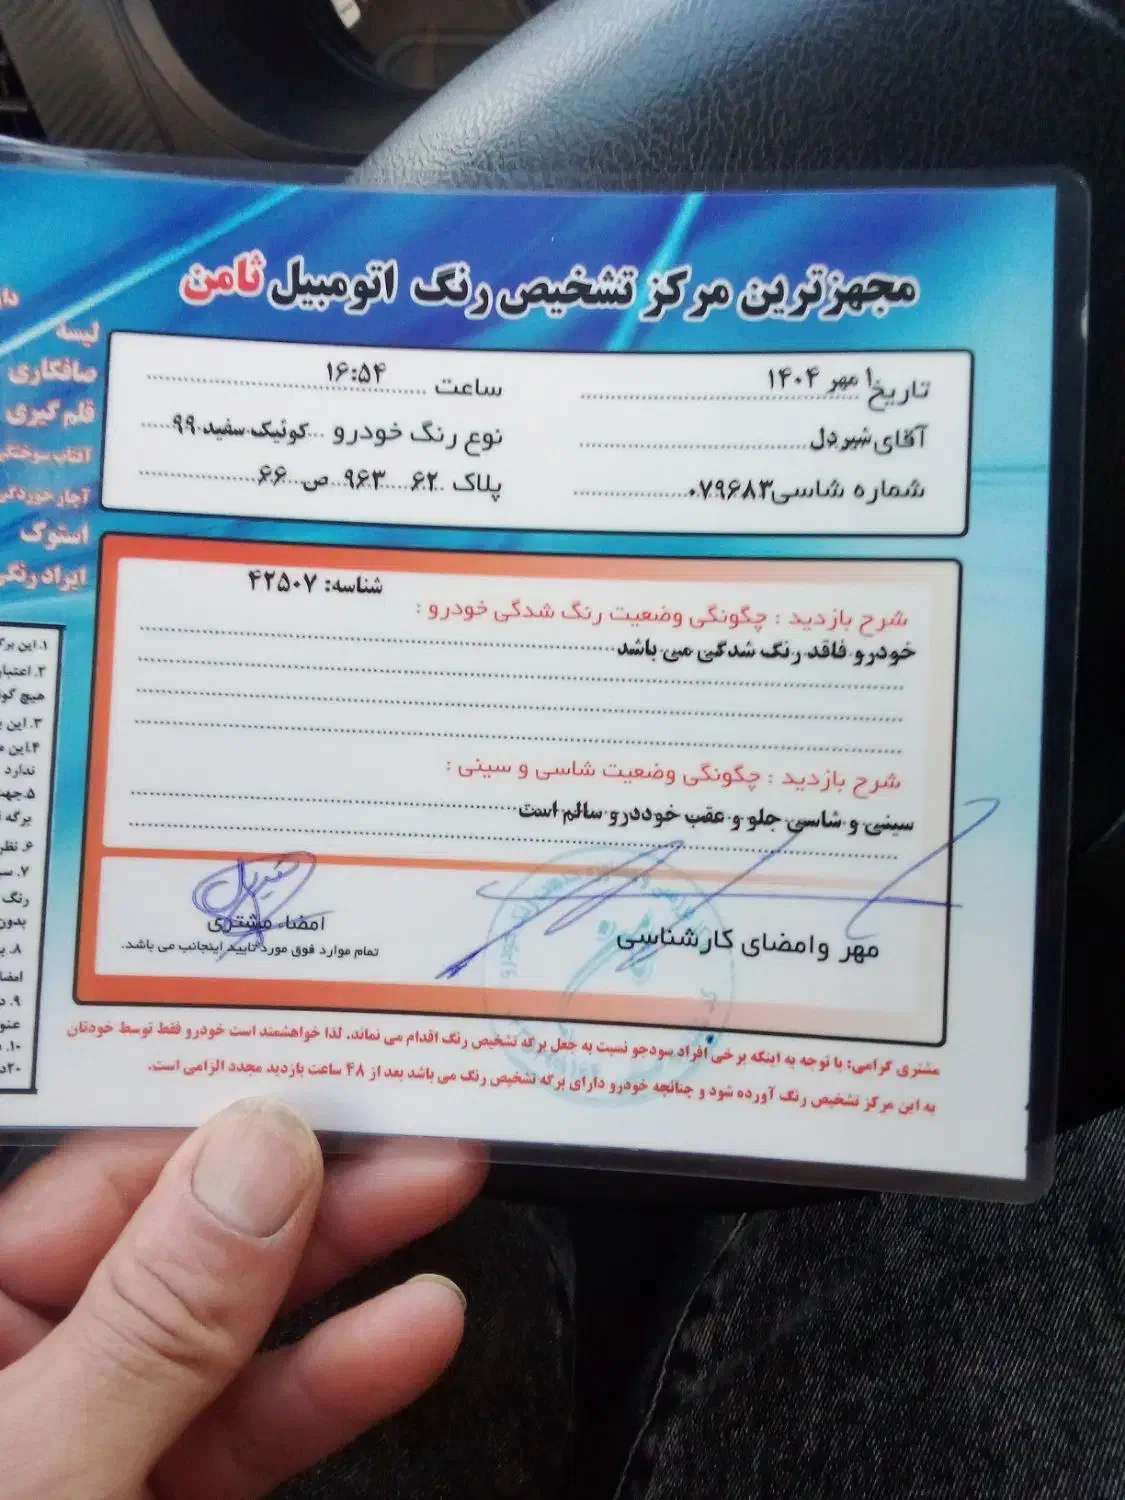 مجهزترین مرکز تشخیص رنگ اتومبیل ثامن
تاریخ ۱ مهر ۱۴۰۴ ساعت ۱۶:۵۴
آقای شیردل نوع رنگ خودرو کوئیک سفید ۹۹
شماره شاسی ۰۷۹۶۸۳ پلاک ۶۲ ۹۶۳ ص ۶۶
شناسه: ۴۲۵۰۷
شرح بازدید : چگونگی وضعیت رنگ شدگی خودرو :
خودرو فاقد رنگ شدگی می باشد
شرح بازدید : چگونگی وضعیت شاسی و سینی :
سینی و شاسی جلو و عقب خوددرو سالم است
مهر وامضای کارشناسی
امضاء مشتری
تمام موارد فوق مورد تایید اینجانب می باشد.
مشتری گرامی: با توجه به اینکه برخی افراد سودجو نسبت به جعل برگه تشخیص رنگ اقدام می نماند، لذا خواهشمند است خودرو فقط توسط خودتان
به این مرکز تشخیص رنگ آورده شود و چنانچه خودرو دارای برگه تشخیص رنگ می باشد بعد از ۴۸ ساعت بازدید مجدد الزامی است.
لیسه
صافکاری
قلم گیری
آفتاب سوختگی
آچار خوردگی
استوک
ایراد رنگی
۱. این
۲. اعتبار
هیچ
۳. این
۴. این
ندارد
۵.
برگه
۶. نظر
۷.
رنگ
بدون
۸.
۹.
۱۰.